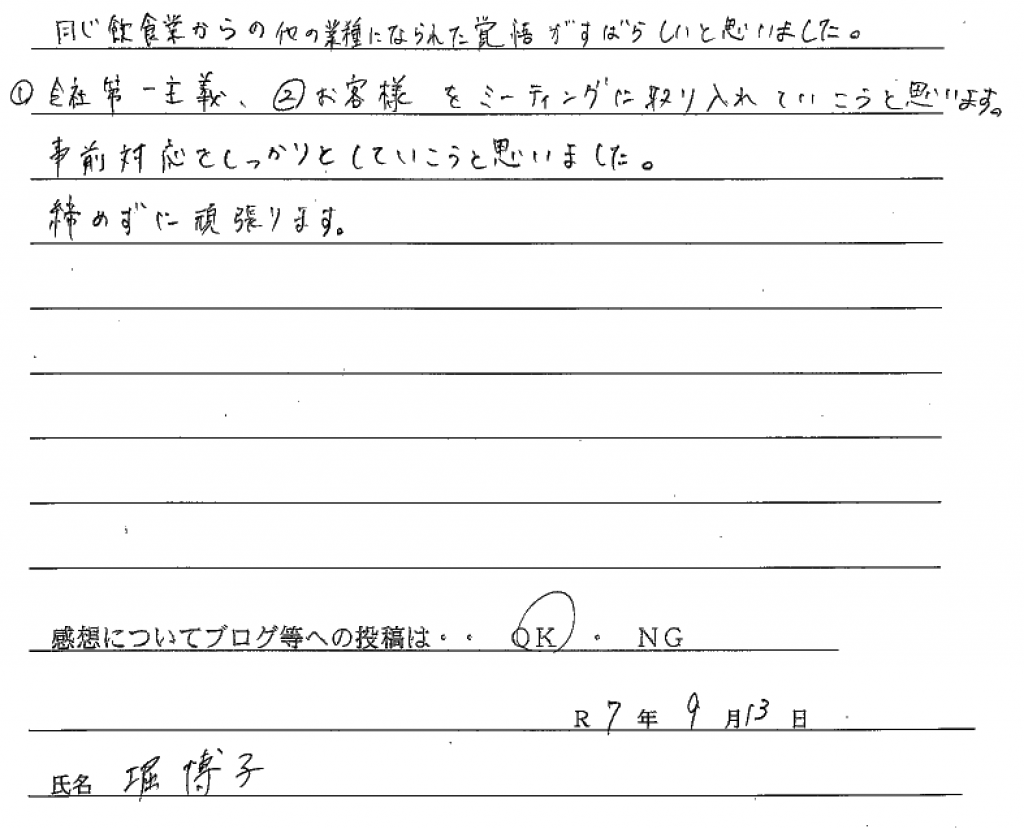 同じ飲食業からの他の業種になられた覚悟がすばらしいと思いました。
①会社第一主義、②お客様 をミーティングに取り入れていこうと思います。
事前対応をしっかりとしていこうと思いました。
締めずに頑張ります。
感想についてブログ等への投稿は・・ OK ・ NG
R 7 年 9 月 13 日
氏名 堀 博子